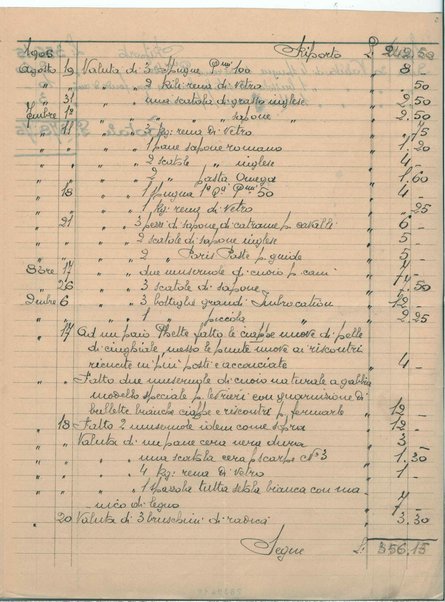 1905 Riporto L. 242,50
Agosto 19 Valuta di 3 spugne 8 -
" " " " 2 kili rena di vetro " . 50
" 31 " " una scatola di grasso inglese " . 50
7mbre 12 " " " " sapone " 2. 50
" 11 " " 3 kg. rena di vetro " . 75
" " " " 1 pane sapone romano " 1. 20
" " " " 2 scatole " inglese " 4 -
" " " " 2 " pasta Omega " 1. 60
" 18 " " 1 spugna 50 " 4 -
" " " " 1 kg. rena di vetro " . 25
" 21 " " 3 pezzi di sapone di catrame p. cavalli " 6 -
" " " " 2 scatole di sapone inglese " 5 -
" " " " 2 " Paris Paste p. guide " 5 -
8bre 17 " " due museruole di cuoio p. cani " 7 -
" 26 " " 3 scatole di sapone " 7. 50
9mbre 6 " " 3 bottiglie grandi Imbrocation " 12 -
" " " " 1 " piccola " 2. 25
" 17 Ad un paio fatto le ciappe nuove di pelle
di cinghiale, messo le punte nuove ai riscontri
ricucite in più posti e accomciate " 4 -
" " Fatto due museruole di cuoio naturale a gabbia
modello speciale p. levrieri con guarnizione di
bullette bianche ciappe e riscontri p. fermarle " 12 -
" 18 Fatto 2 museruole idem come sopra " 12 -
" " Valuta di un pane cera nera dura " 3 -
" " " " una scatola cera p. scarpe No 3 " 1. 30
" " " " 4 kg. rena di vetro " 1 -
" " " " 1 spazzola tutta setola bianca con ma-
nico di legno " 7 -
" 20 Valuta di 3 bruschini di radica " 3. 30
Segue L. 356,15